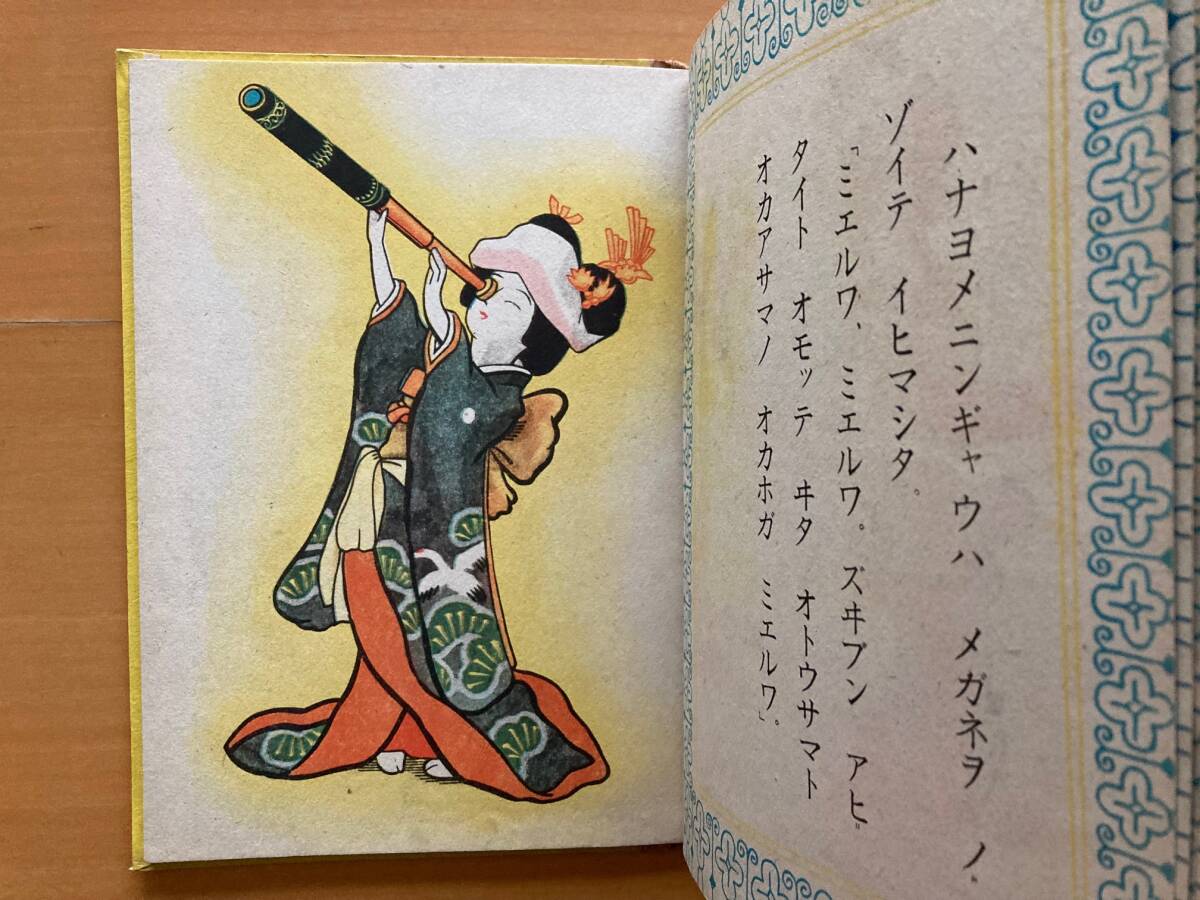 ハナヨメニンギャウハ メガネヲ ノ
ゾイテ イヒマシタ。
「ミエルワ、ミエルワ。ズヰブン アヒ
タイト オモッテ ヰタ オトウサマト
オカアサマノ オカホガ ミエルワ」。